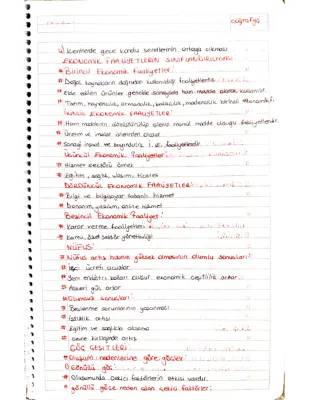 coğrafya
4) Kentlerde gece kondu semtlerinin ortaya çıkması
EKONOMİK FAALİYETLERİN SINIFLANDIRILMASI
* Birincil Ekonomik Faaliyetler:
* Doğal kaynakların doğrudan kullanıldığı faaliyetlerdir.
* Elde edilen ürünler genelde sanayide ham madde olarak kullanılır.
* Tarım, hayvancılık, ormancılık, balıkçılık, madencilik birincil ekonomik f.
İKİNCİL EKONOMİK FAALİYETLER:
* Ham maddenin işlenmiş madde olduğu faaliyetlerdir.
* Üretim ve imalat
* Sanayi inşaat ve bayındırlık faaliyetleridir
Üçüncül Ekonomik Faaliyetler:
* Hizmet sektörü
* Eğitim, sağlık, ulaşım, ticaret
DÖRDÜNCÜL EKONOMİK FAALİYETLER:
* Bilgi ve bilgisayar tabanlı hizmet
* Donanım, yazılım, hizmet
Beşincil Ekonomik Faaliyet:
* Karar verme faaliyetleri
* Kamu, özel sektör yöneticiliği
NÜFUS:
* Nüfus artış hızının yüksek olmasının olumlu sonuçları:
* İşçi ücreti ucuzlar
* Yeni endüstri kolları doğar, ekonomik çeşitlilik artar.
* Askeri güç artar
* Olumsuz sonuçları:
* Beslenme sorunlarının yaşanması
* İşsizlik artışı
* Eğitim ve sağlıkta aksama
* Çevre kirliliğinde artış
GÖÇ ÇEŞİTLERİ:
* Oluşum nedenlerine göre göçler:
1) Gönüllü göç:
* Oluşumunda çekici faktörlerin etkisi vardır.
* gönüllü göçe neden olan çekici faktörler: